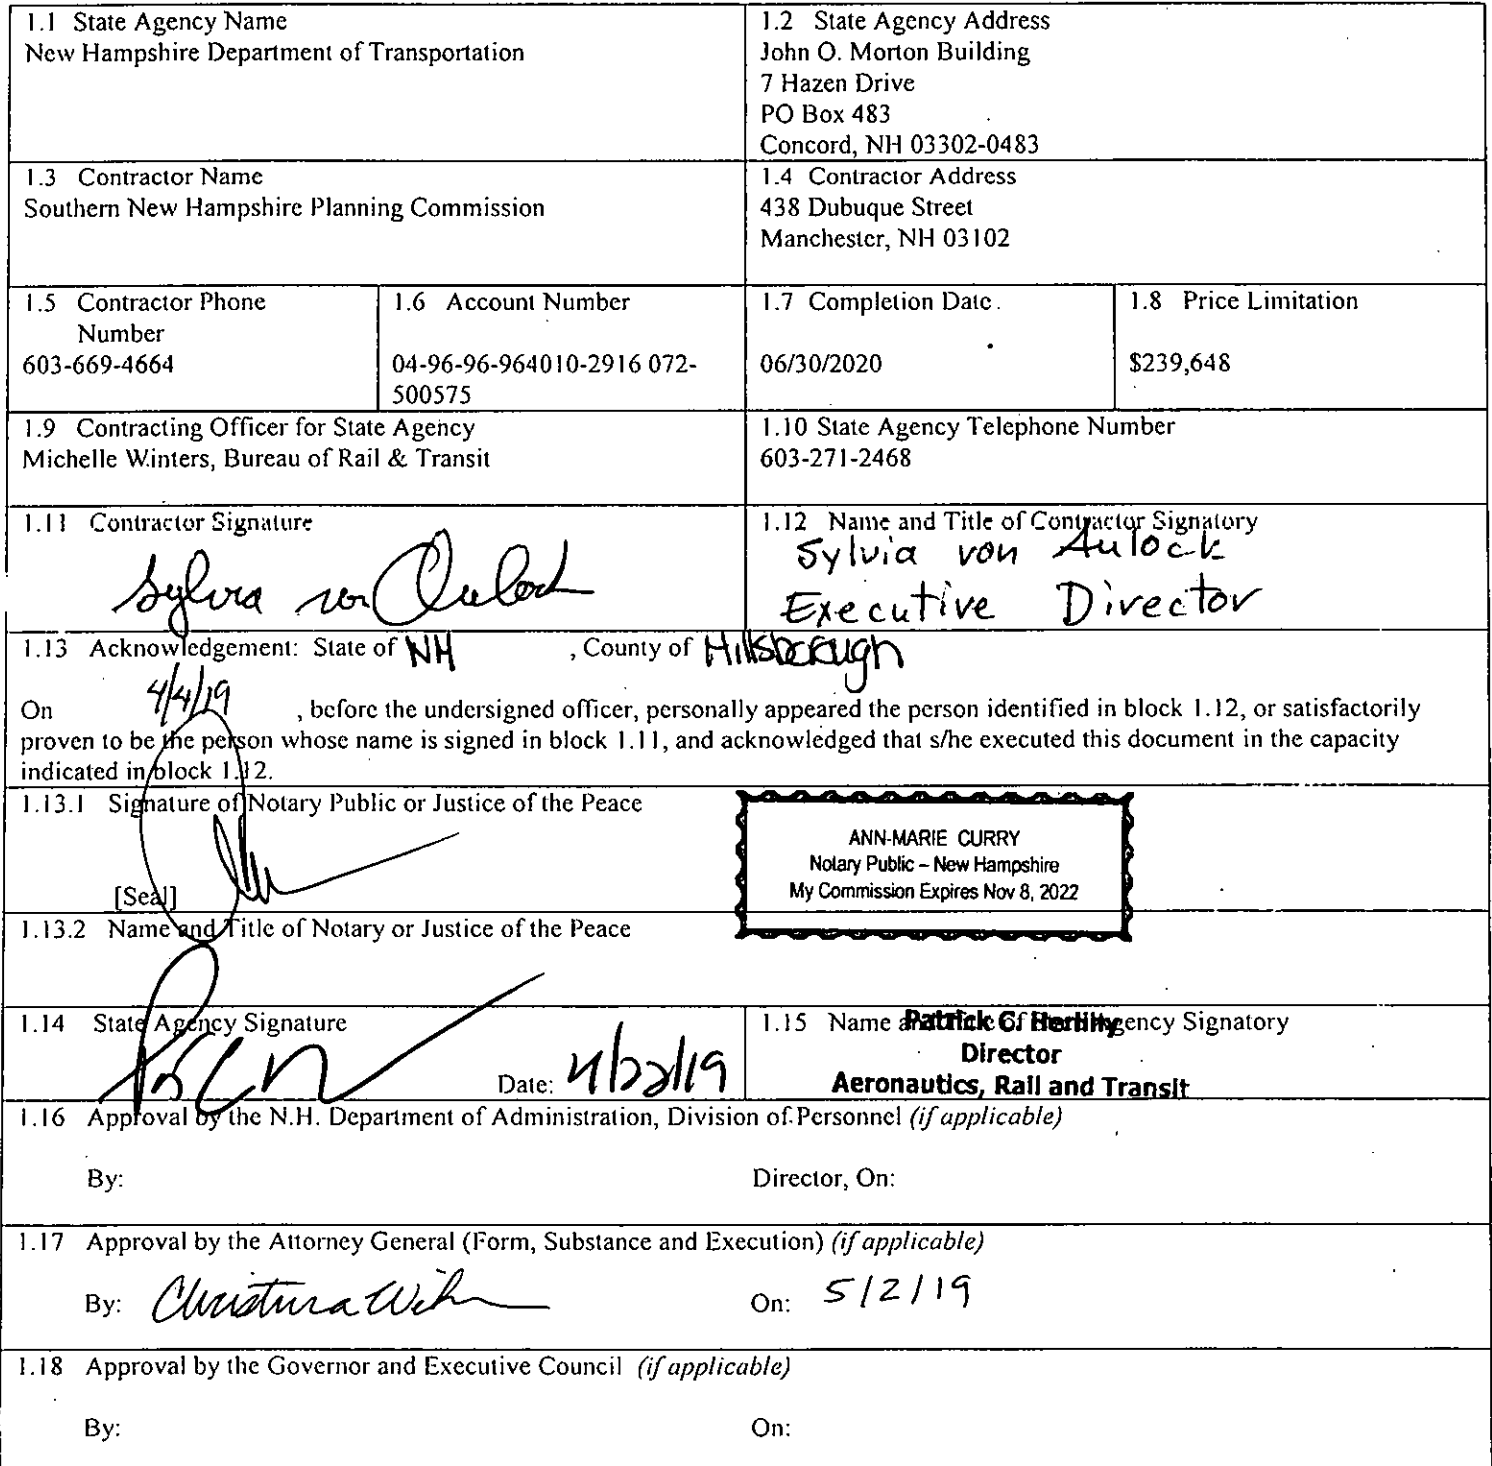 1.1 State Agency Name
New Hampshire Department of Transportation
1.2 State Agency Address
John O. Morton Building
7 Hazen Drive
PO Box 483
Concord, NH 03302-0483
1.3 Contractor Name
Southern New Hampshire Planning Commission
1.4 Contractor Address
438 Dubuque Street
Manchester, NH 03102
1.5 Contractor Phone
Number
603-669-4664
1.6 Account Number
04-96-96-964010-2916 072-
500575
1.7 Completion Date
06/30/2020
1.8 Price Limitation
$239,648
1.9 Contracting Officer for State Agency
Michelle Winters, Bureau of Rail & Transit
1.10 State Agency Telephone Number
603-271-2468
1.11 Contractor Signature
Sylvia von Aulock
1.12 Name and Title of Contractor Signatory
Sylvia von Aulock
Executive Director
1.13 Acknowledgement: State of NH , County of Hillsborough
On 4/4/19 , before the undersigned officer, personally appeared the person identified in block 1.12, or satisfactorily
proven to be the person whose name is signed in block 1.11, and acknowledged that s/he executed this document in the capacity
indicated in block 1.12.
1.13.1 Signature of Notary Public or Justice of the Peace
[Seal]
ANN-MARIE CURRY
Notary Public – New Hampshire
My Commission Expires Nov 8, 2022
1.13.2 Name and Title of Notary or Justice of the Peace
1.14 State Agency Signature
Date: 4/22/19
1.15 Name Agency Signatory
Patrick C. Herlihy
Director
Aeronautics, Rail and Transit
1.16 Approval by the N.H. Department of Administration, Division of Personnel (if applicable)
By: Director, On:
1.17 Approval by the Attorney General (Form, Substance and Execution) (if applicable)
By: Christina On: 5/2/19
1.18 Approval by the Governor and Executive Council (if applicable)
By: On: